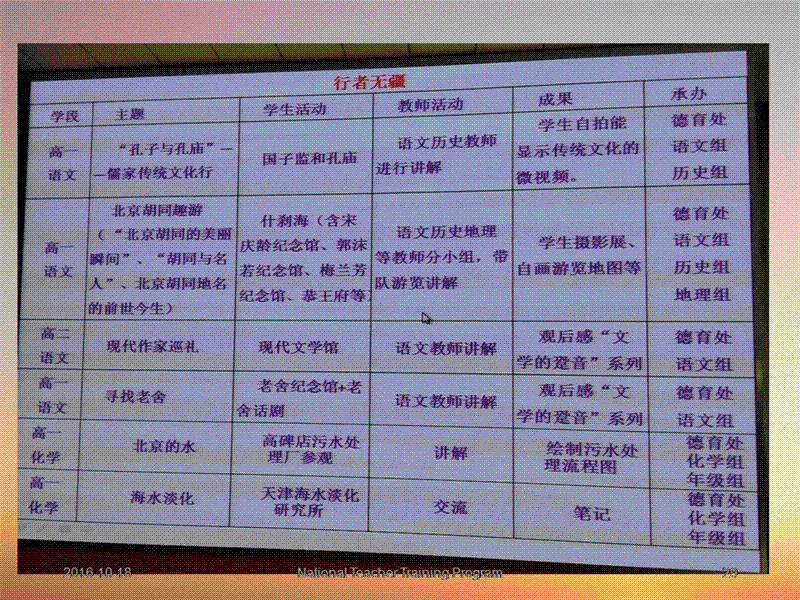 行者无疆
学段 主题 学生活动 教师活动 成果 承办
高一
语文
“孔子与孔庙”-
-儒家传统文化行
国子监和孔庙
语文历史教师
进行讲解
学生自拍能
显示传统文化的
微视频。
德育处
语文组
历史组
高一
语文
北京胡同趣游
（“北京胡同的美丽
瞬间”、“胡同与名
人”、北京胡同地名
的前世今生）
什刹海（含宋
庆龄纪念馆、郭沫
若纪念馆、梅兰芳
纪念馆、恭王府等）
语文历史地理
等教师分小组，带
队游览讲解
学生摄影展、
自画游览地图等
德育处
语文组
历史组
地理组
高二
语文
现代作家巡礼
现代文学馆
语文教师讲解
观后感“文
学的跫音”系列
德育处
语文组
高一
语文
寻找老舍
老舍纪念馆+老
舍话剧
语文教师讲解
观后感“文
学的跫音”系列
德育处
语文组
高一
化学
北京的水
高碑店污水处
理厂参观
讲解
绘制污水处
理流程图
德育处
化学组
年级组
高一
化学
海水淡化
天津海水淡化
研究所
交流
笔记
德育处
化学组
年级组
2016-10-18 National Teacher Training Program